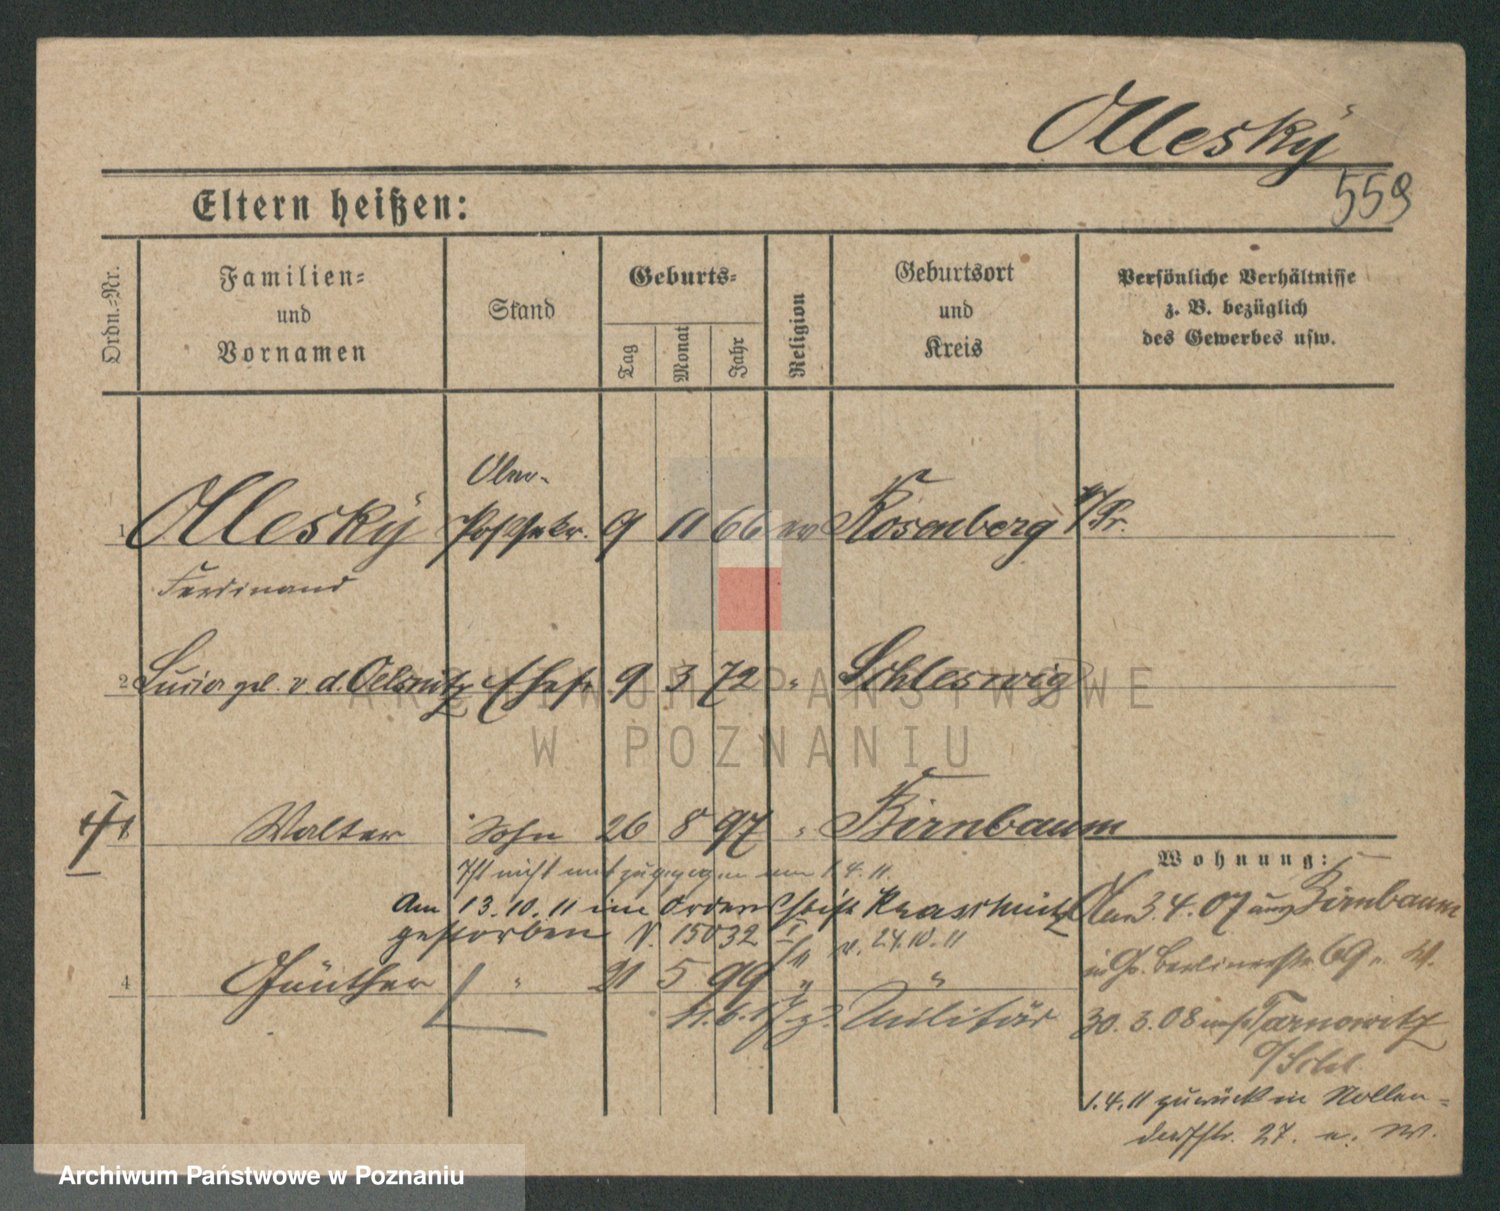 Ollesky
559
Eltern heißen:
Ordn.-Nr.
Familien-
und
Vornamen
Stand
Geburts-
Tag
Monat
Jahr
Religion
Geburtsort
und
Kreis
Persönliche Verhältnisse
z. B. bezüglich
des Gewerbes usw.
Ober-
1 Ollesky Postsekr. 9 11 66 ev Rosenberg W/Pr.
Ferdinand
2 Lucia geb. v. d. Oelsnitz Ehefr. 9 3 72 " Schleswig
Walter Sohn 26 8 97 " Birnbaum
Ist nicht mit zugezogen am 1.4.11.
Am 13.10.11 im Ordens Stift Kraschnitz
gestorben V. 15032 v. 24.10.11
4 Günther " 21 5 99 " "
11.6.17 z. Militär
Wohnung:
Am 3.4.07 aus Birnbaum
in Gr. Berlinerstr 69 u. W.
30.3.08 nach Tarnowitz
O/Schl.
1.4.11 zurück in Nollen-
dorfstr. 27. u. W.
ARCHIWUM PAŃSTWOWE
W POZNANIU
Archiwum Państwowe w Poznaniu